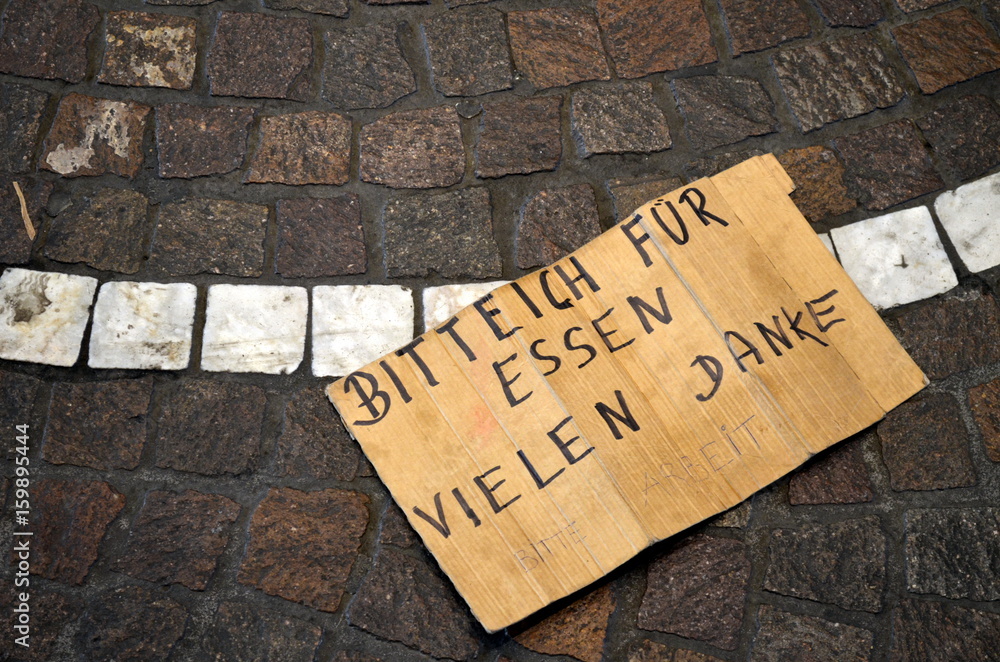 BITTE ICH FÜR
ESSEN
VIELEN DANKE
BITTE ARBEIT
159895444